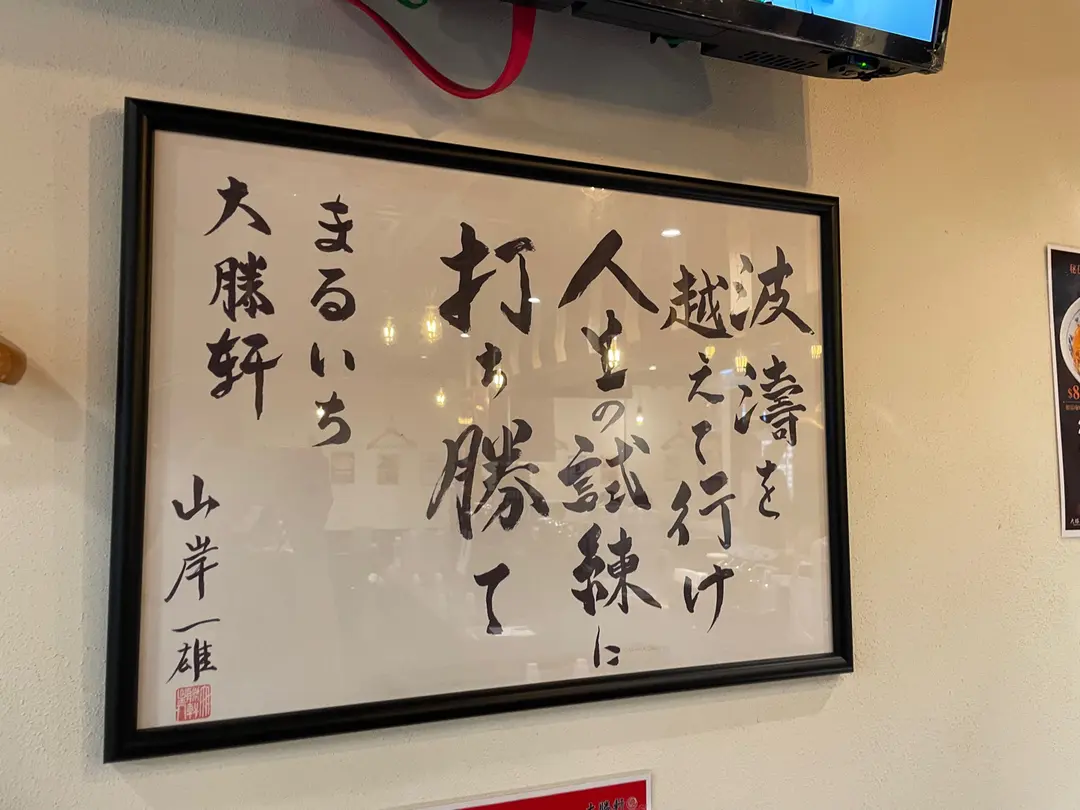 波濤を
越えて行け
人生の試練に
打ち勝て
まるいち
大勝軒
山岸一雄
$8